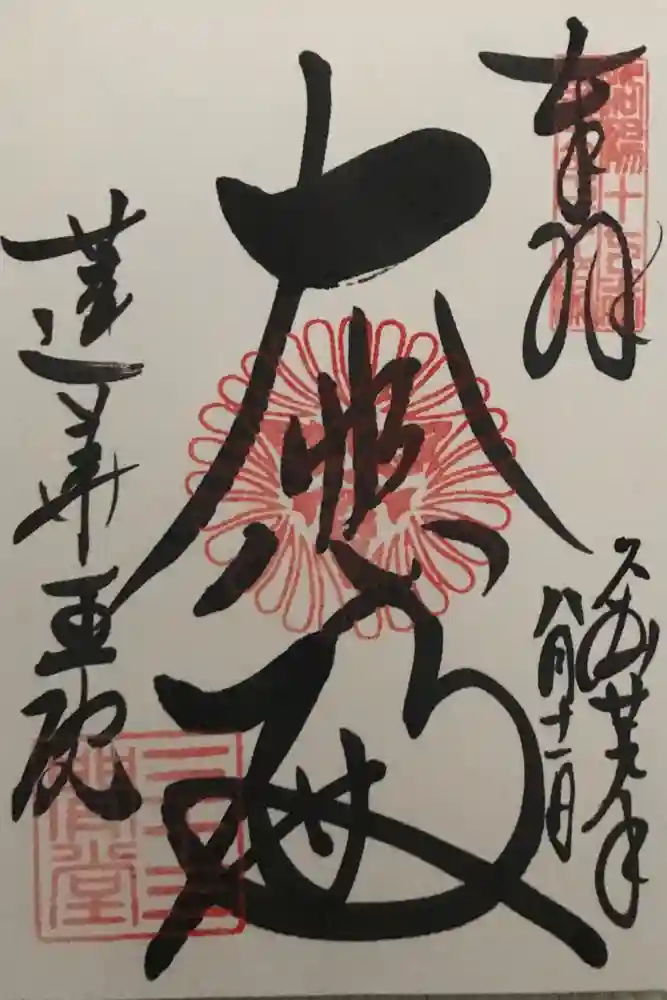 奉拝
洛陽十七番
八月十一日
大悲殿
蓮華王院
三十三間堂